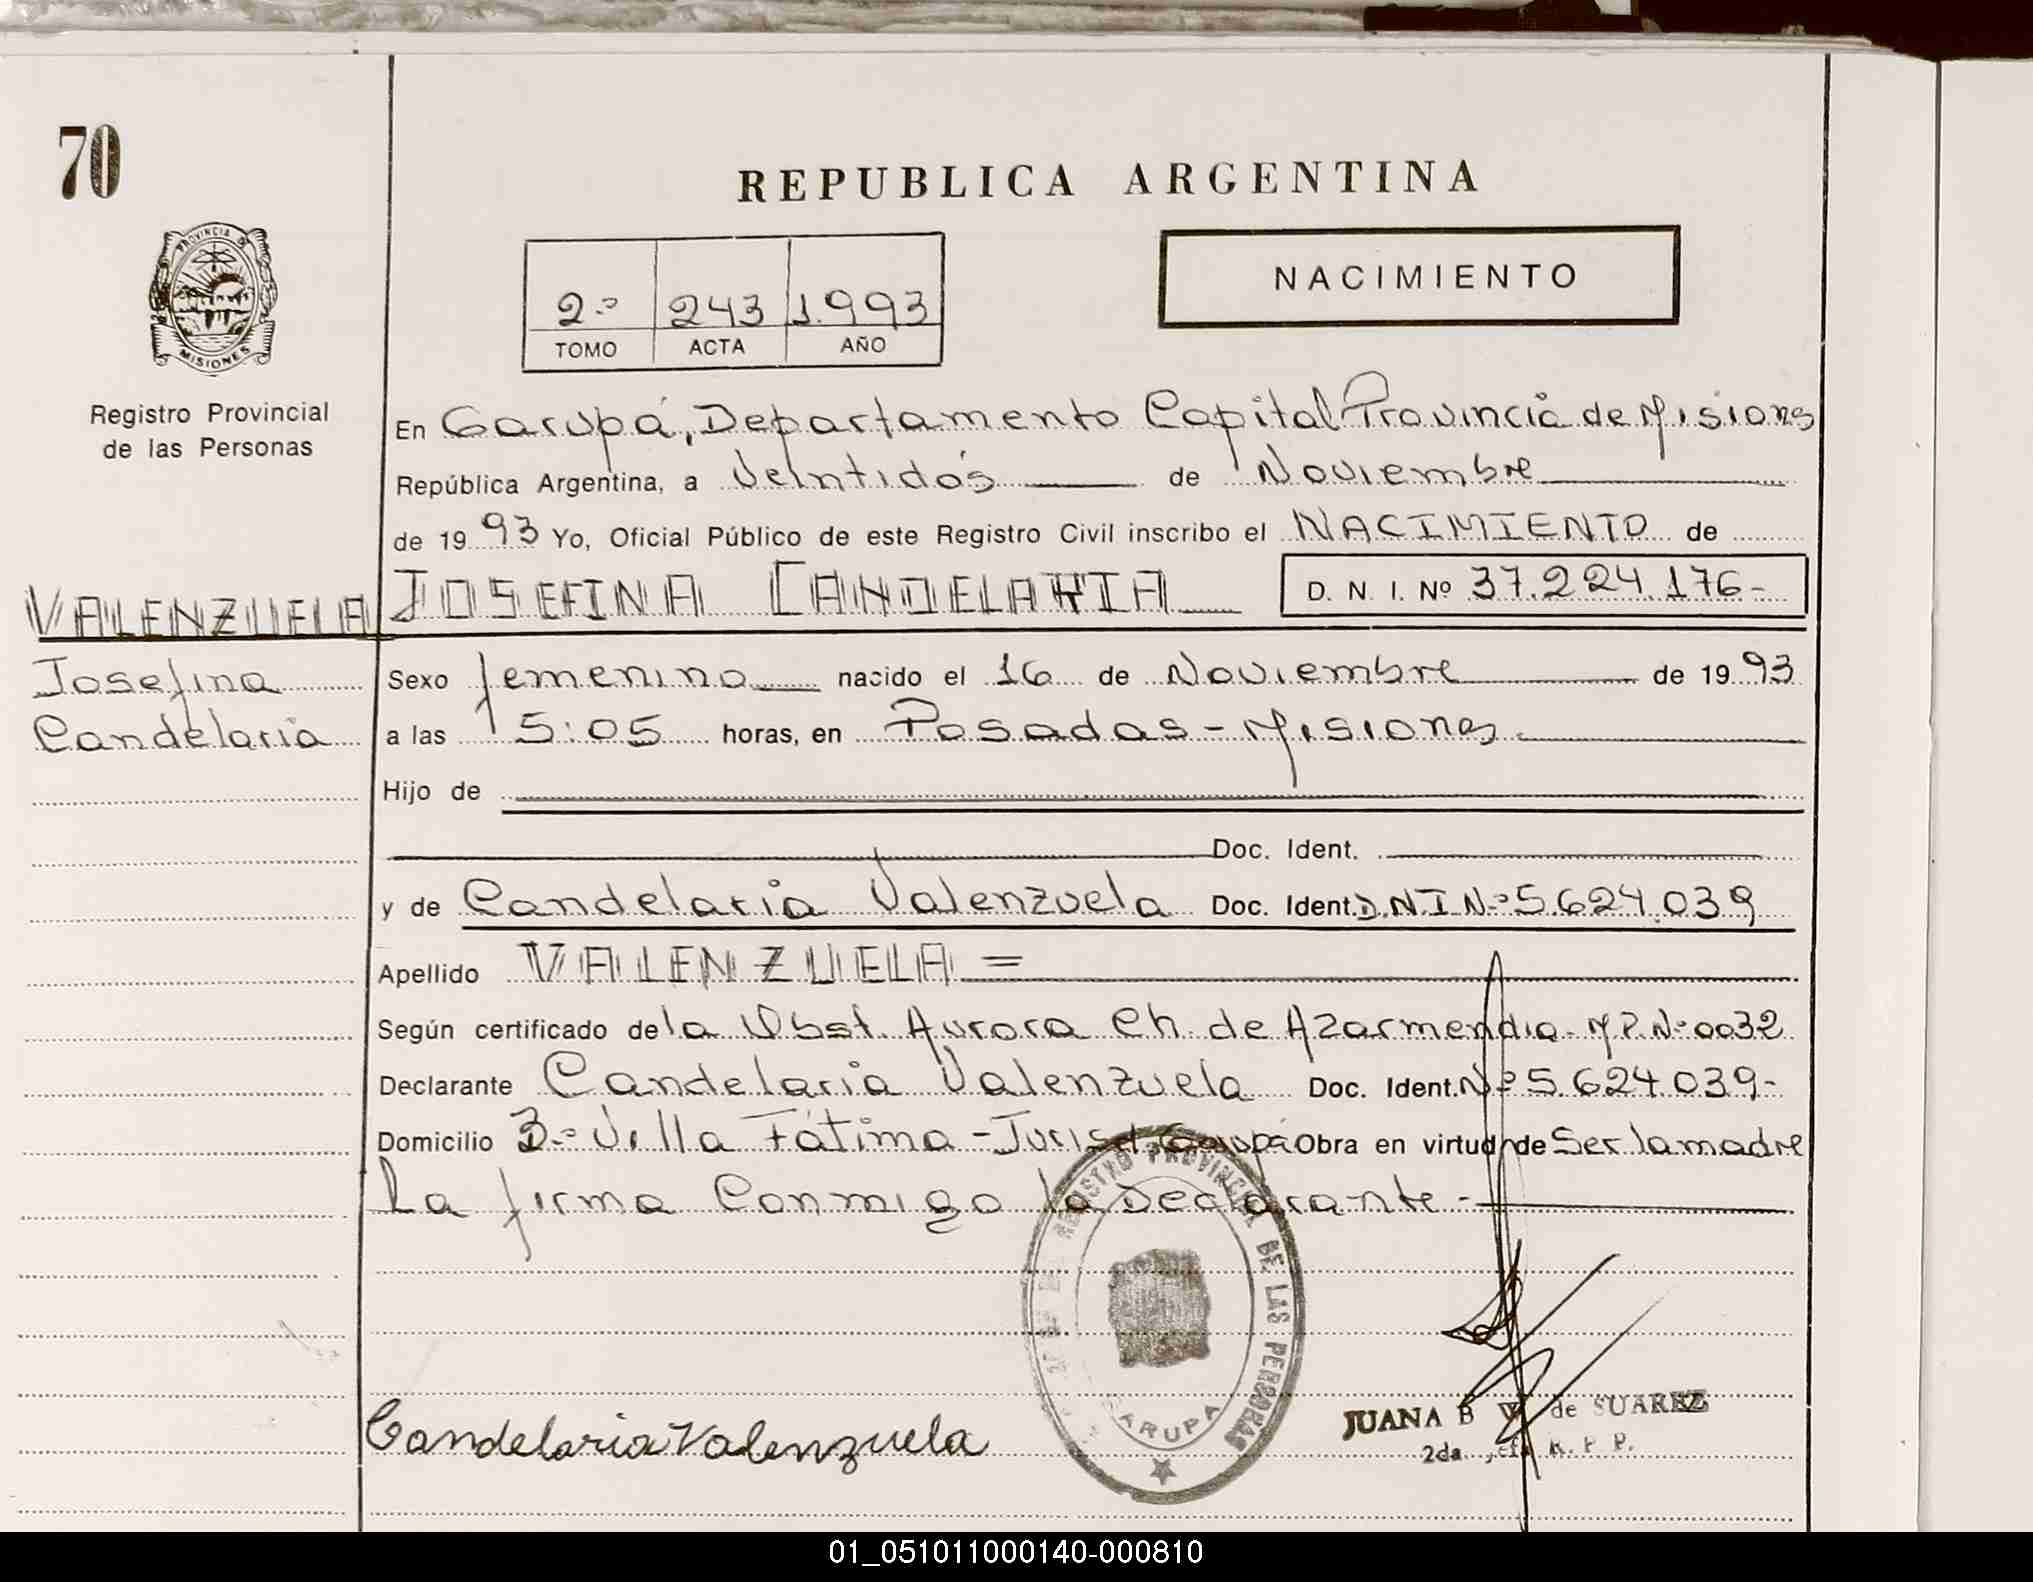 70
REPUBLICA ARGENTINA
PROVINCIA DE
MISIONES
Registro Provincial
de las Personas
2.º 243 1.993
TOMO ACTA AÑO
NACIMIENTO
En Garupá, Departamento Capital Provincia de Misiones
República Argentina, a Veintidós de Noviembre
de 19 93 Yo, Oficial Público de este Registro Civil inscribo el NACIMIENTO de
VALENZUELA JOSEFINA CANDELARIA D. N. I. Nº 37.224.176-
Josefina
Candelaria
Sexo femenino nacido el 16 de Noviembre de 19 93
a las 15:05 horas, en Posadas - Misiones
Hijo de
Doc. Ident.
y de Candelaria Valenzuela Doc. Ident. D.N.I N.º 5.624.039
Apellido VALENZUELA =
Según certificado de la Obst. Aurora Ch. de Azarmendia M.P.Nº 0032
Declarante Candelaria Valenzuela Doc. Ident. Nº 5.624.039-
Domicilio B.º Villa Fátima - Jurisd. Garupá Obra en virtud de Ser la madre
La firma Conmigo la Declarante -
REGISTRO PROVINCIAL DE LAS PERSONAS
GARUPA
Candelaria Valenzuela
JUANA B de SUAREZ
2da. R. P. P.
01_051011000140-000810